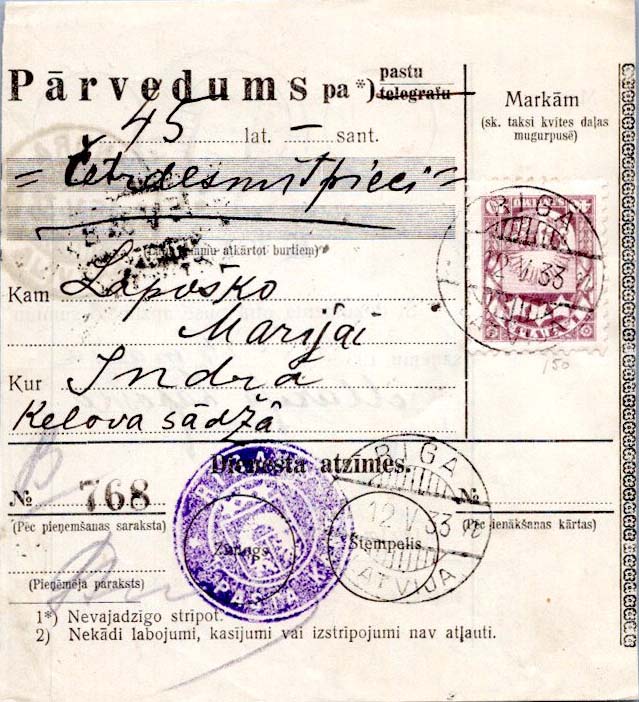 Pārvedums pa*) pastu
telegrafu
45 lat. — sant.
= Četrdesmit pieci =
atkārtot burtiem)
Kam Lapoško
Marijai
Kur Indrā
Kelova sādžā
Markām
(sk. taksi kvites daļas
mugurpusē)
RIGA
33
Dienesta atzīmes.
№ 768
(Pēc pieņemšanas saraksta)
(Pieņēmēja paraksts)
Zīmogs
RIGA
12 V 33
Štempelis
LATVIJA
№
(Pēc ienākšanas kārtas)
1*) Nevajadzīgo strīpot.
2) Nekādi labojumi, kasījumi vai izstrīpojumi nav atļauti.
150